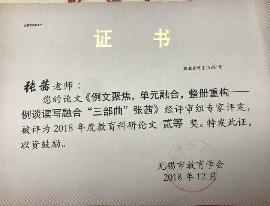 证 书
张茜老师：
您的论文《例文聚焦，单元融合，整册重构——
例谈读写融合“三部曲”张茜》经评审组专家评定，
被评为2018年度教育科研论文 贰等 奖。特发此证，
以资鼓励。
无锡市教育学会
2018年12月